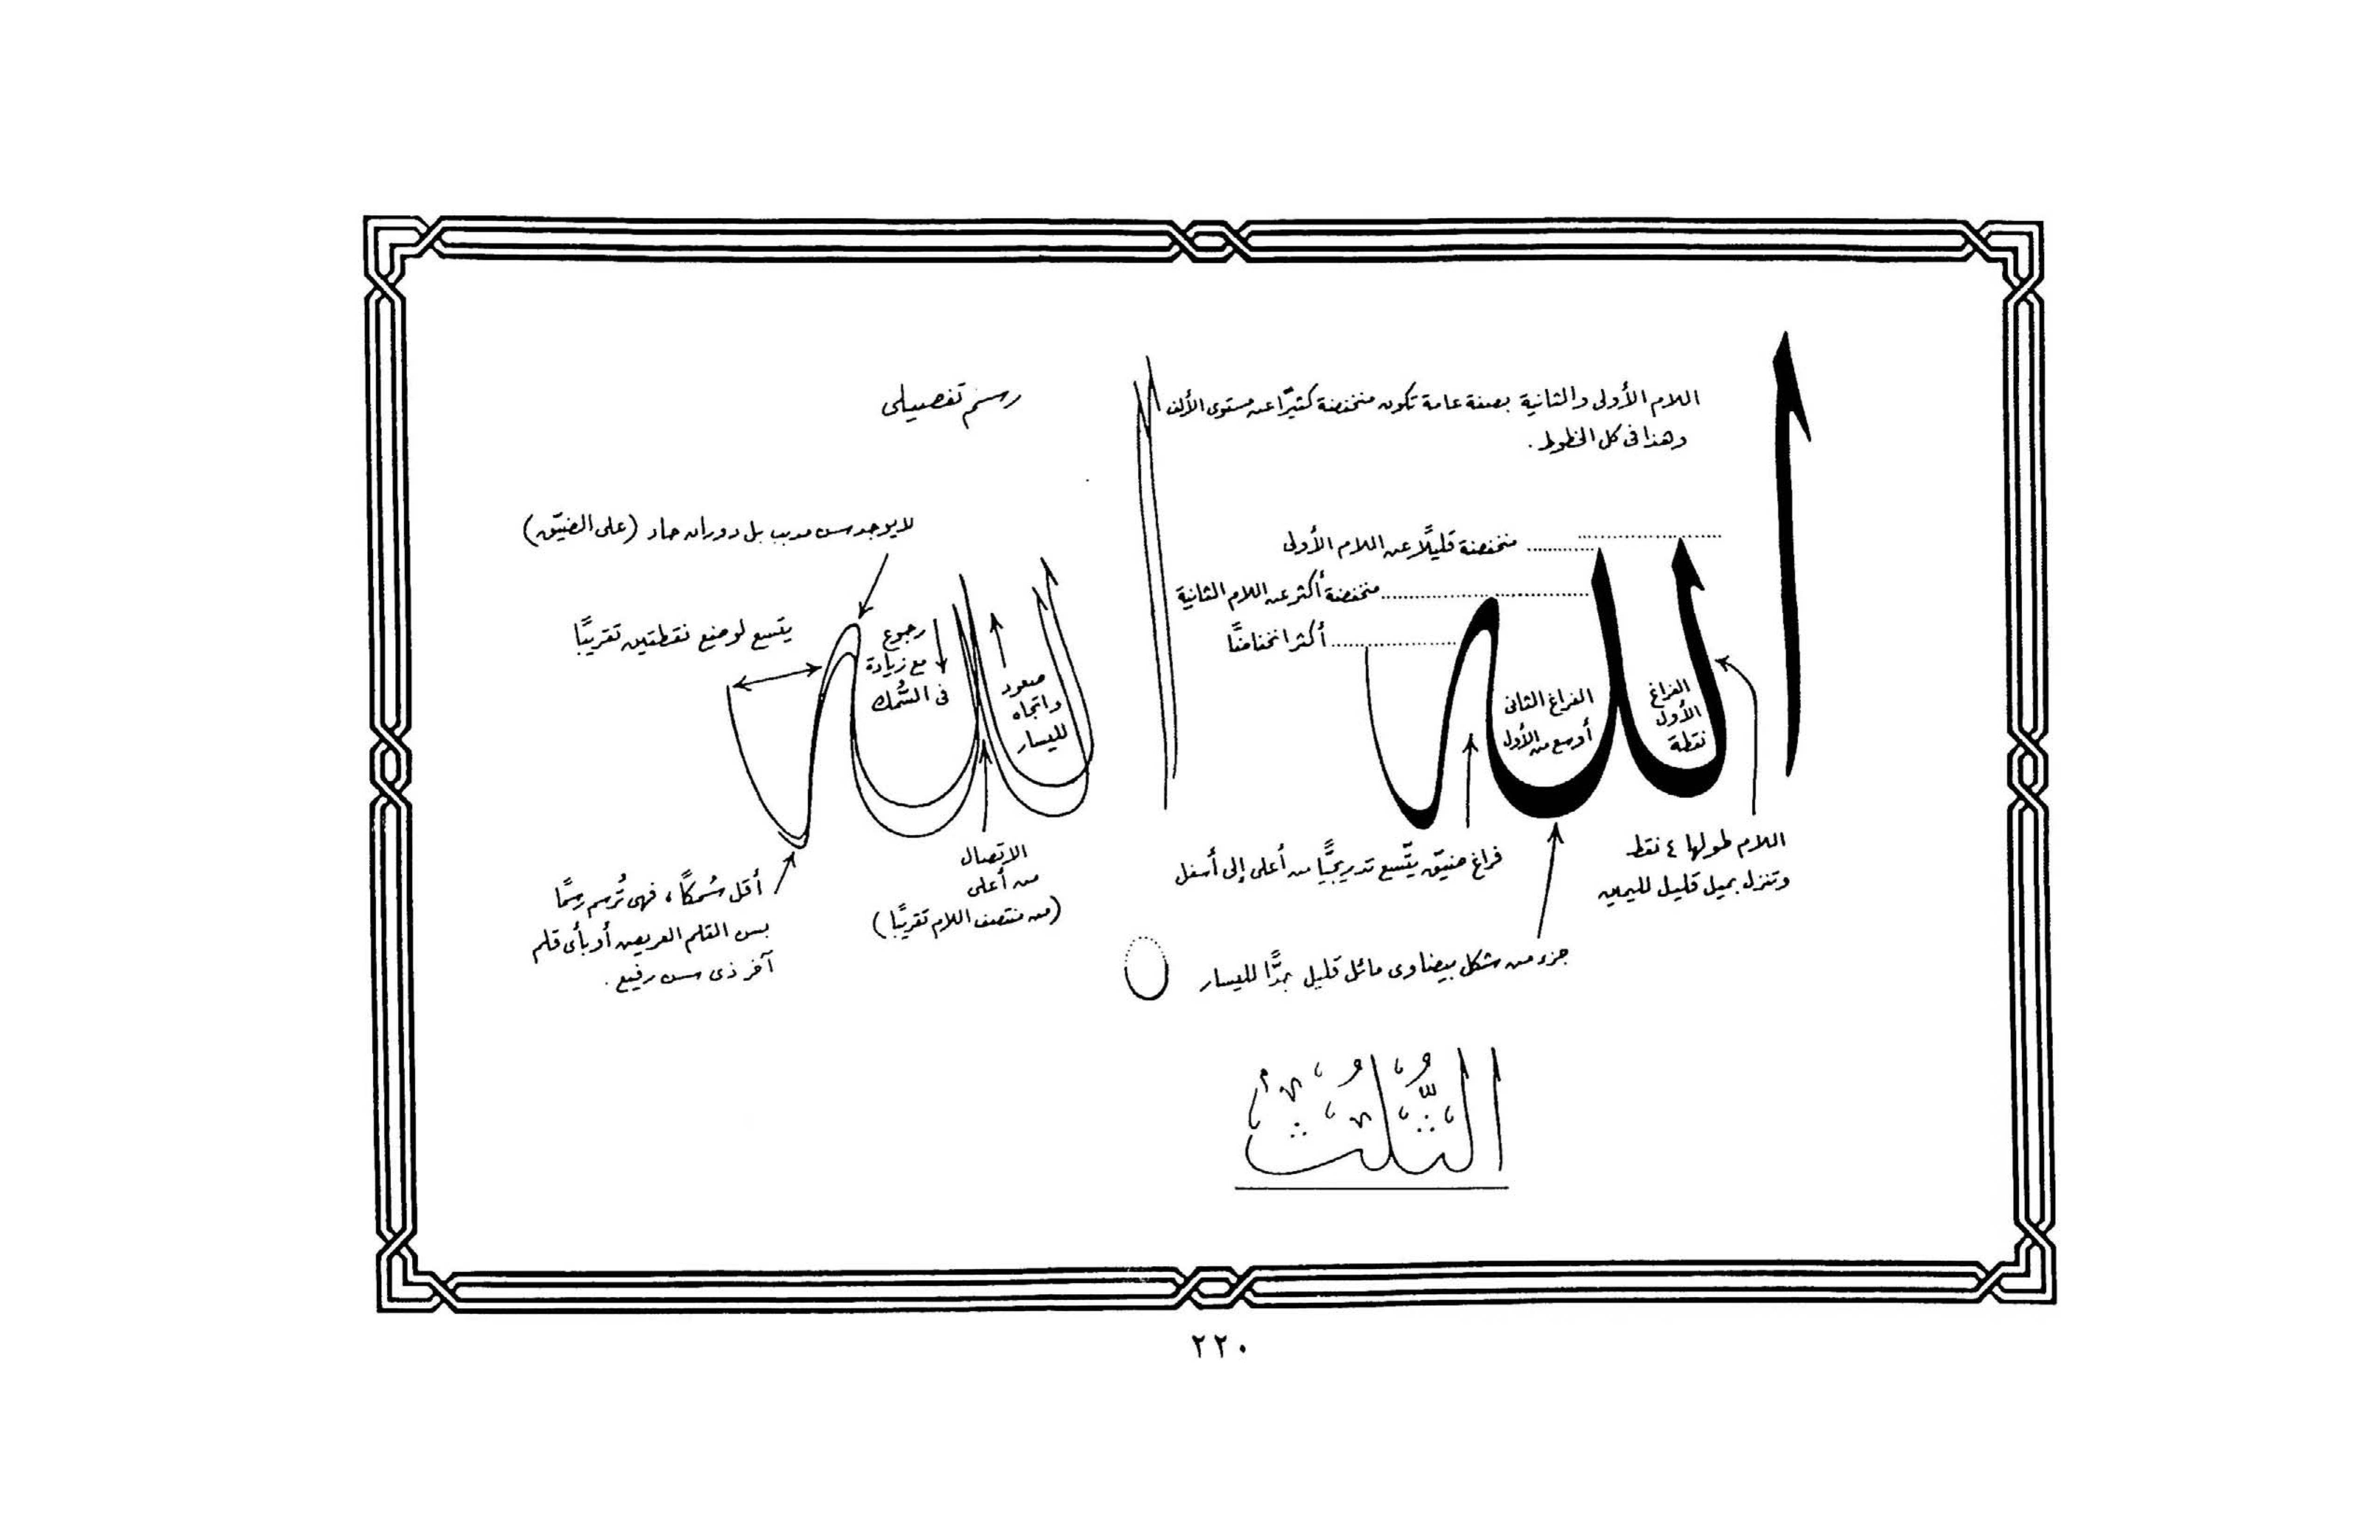 اللام الأولى والثانية بصفة عامة تكون منخفضة كثيرًا عن مستوى الألف
وهذا فى كل الخطوط.
الله
منخفضة قليلًا عن اللام الأولى
منخفضة أكثر عن اللام الثانية
أكثر انخفاضًا
الفراغ
الأول
نقطة
الفراغ الثانى
أوسع من الأول
اللام طولها ٤ نقط
وتنزل بميل قليل لليمين
فراغ ضيّق يتّسع تدريجيًّا من أعلى إلى أسفل
جزء من شكل بيضاوى مائل قليل جدًّا لليسار
رسم تفصيلى
الله
لا يوجد سن مدبب بل دوران حاد (على الضيّق)
يتسع لوضع نقطتين تقريبًا
رجوع
مع زيادة
فى السُّمك
صعود
واتجاه
لليسار
الاتصال
من أعلى
(من منتصف اللام تقريبًا)
أقل سُمكًا، فهى تُرسم رسمًا
بسن القلم العريض أو بأى قلم
آخر ذى سن رفيع.
الثُّلُث
٢٢٠